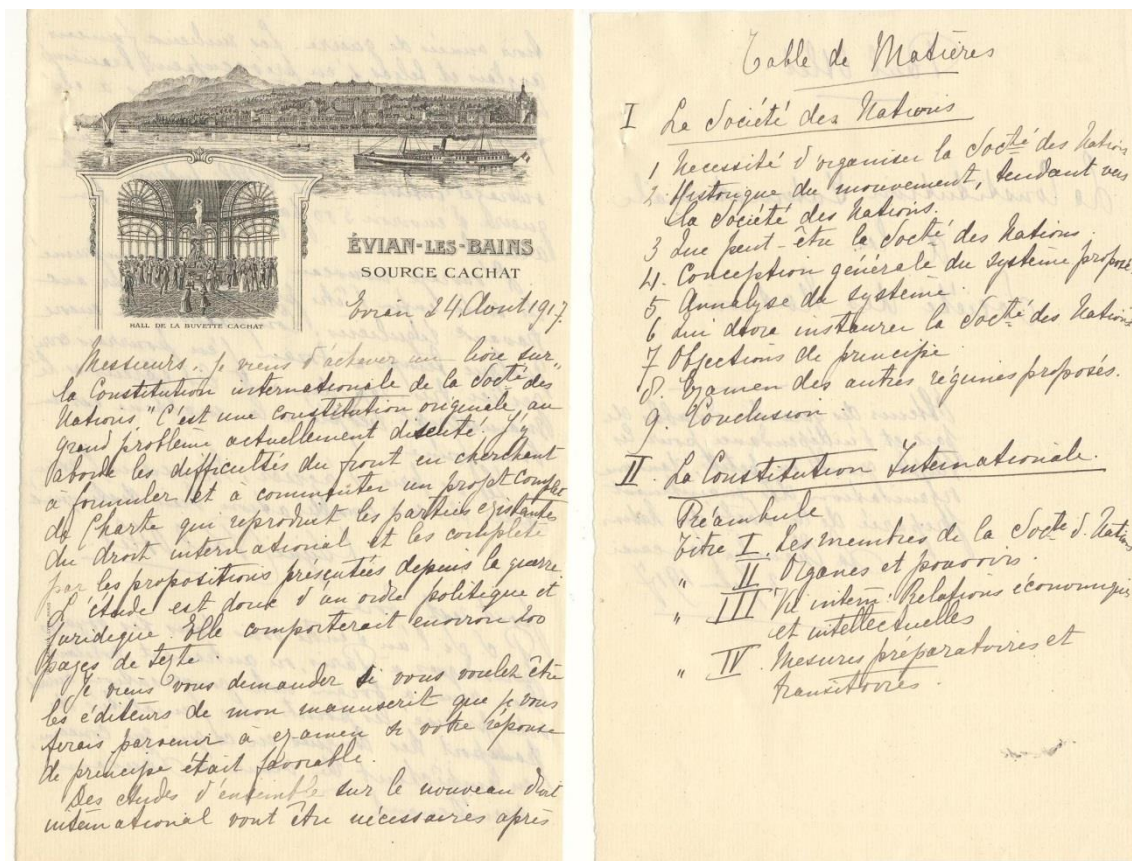 ÉVIAN-LES-BAINS
SOURCE CACHAT
HALL DE LA BUVETTE CACHAT
Evian 24 Aout 1917.
Messieurs. je viens d'achever un livre sur "
la Constitution internationale de la Socté des
Nations." C'est une constitution originale, au
grand problème actuellement discuté. J'y
aborde les difficultés du front en cherchant
à formuler et à commenter un projet complet
de Charte qui reproduit les parties existantes
du droit international et les complète
par les propositions présentées depuis la guerre.
L'étude est donc d'un ordre politique et
juridique. Elle comporterait environ 200
pages de texte.
Je viens vous demander si vous voulez être
les éditeurs de mon manuscrit que je vous
ferais parvenir à examen si votre réponse
de principe était favorable.
Des études d'ensemble sur le nouveau droit
international vont être nécessaires après
Table de Matières
I La Société des Nations
1 Necessité d'organiser la Socté des Nations
2 Historique du mouvement, tendant vers
la Société des Nations.
3 Que peut-être la Socté des Nations.
4. Conception générale du système proposé
5 Annalyse du système.
6 Qui devra instaurer la Socté des Nations
7 Objections de principe
8. Examen des autres régimes proposés.
9. Conclusion
II. La Constitution Internationale.
Préambule
Titre I. Les membres de la Socté d. Nations
" II Organes et pouvoirs
" III Vie intern. Relations économiques
et intellectuelles
" IV. Mesures préparatoires et
transitoires.